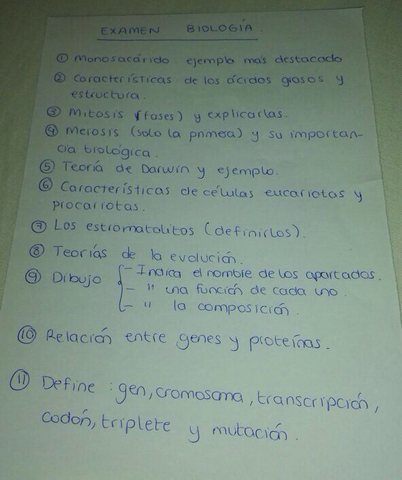 EXAMEN BIOLOGÍA.
① Monosacárido ejemplo más destacado
② Características de los ácidos grasos y
estructura.
③ Mitosis (fases) y explicarlas.
④ Meiosis (solo la primera) y su importan-
cia biológica.
⑤ Teoría de Darwin y ejemplo.
⑥ Características de células eucariotas y
procariotas.
⑦ Los estromatolitos (definirlos).
⑧ Teorías de la evolución.
⑨ Dibujo { - Indica el nombre de los apartados.
- " una función de cada uno.
- " la composición.
⑩ Relación entre genes y proteínas.
⑪ Define: gen, cromosoma, transcripción,
codón, triplete y mutación.